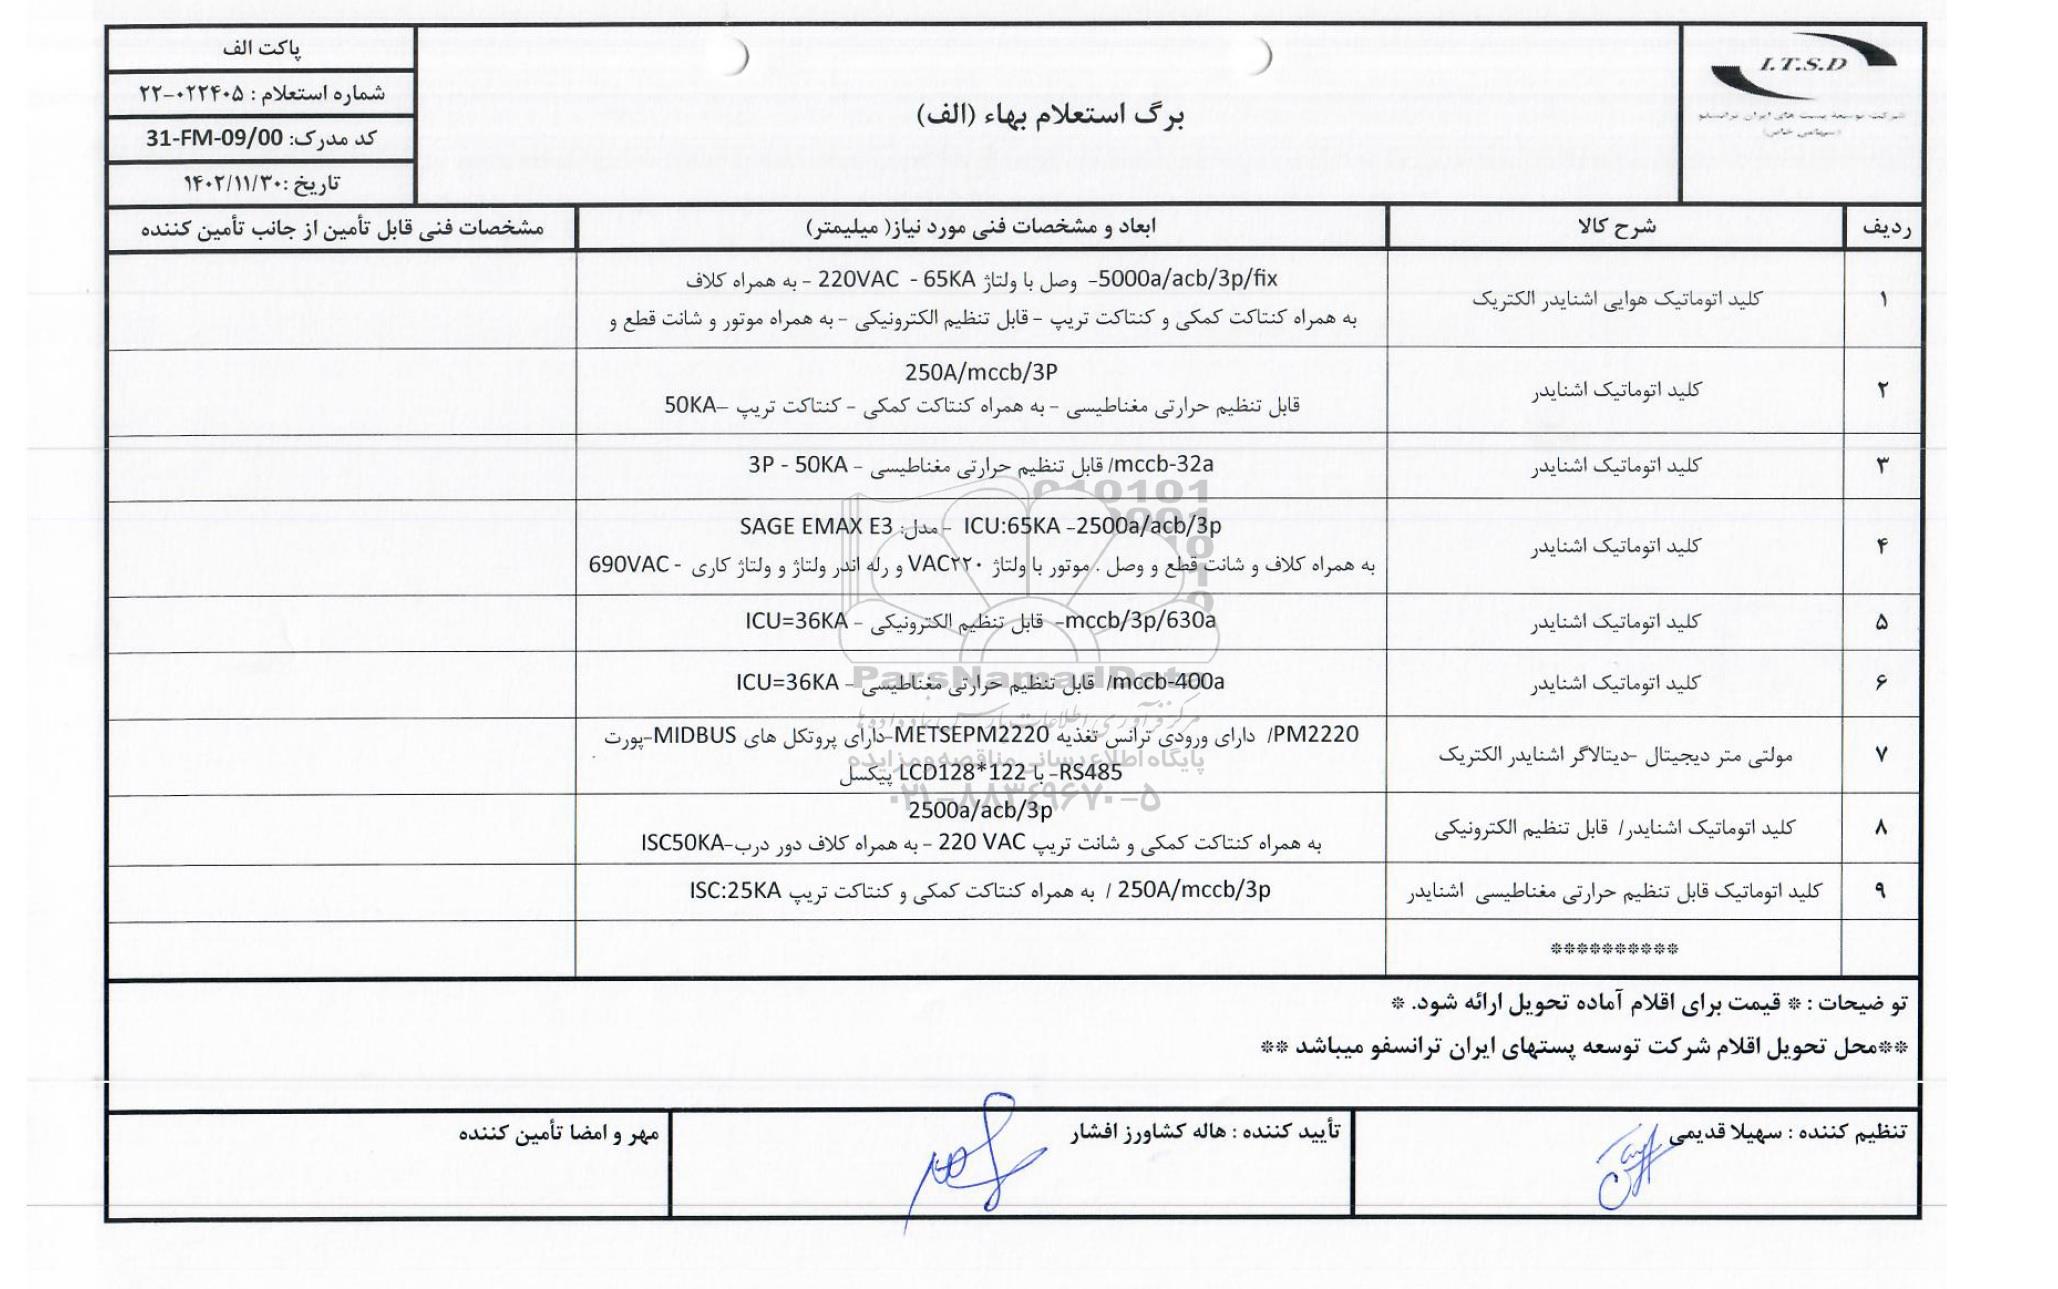 پاکت الف
شماره استعلام : ۰۲۲۴۰۵-۲۲
کد مدرک: 31-FM-09/00
تاریخ :۱۴۰۲/۱۱/۳۰
برگ استعلام بهاء (الف)
I.T.S.D
شرکت توسعه پست های ایران ترانسفو
(سهامی خاص)
ردیف شرح کالا ابعاد و مشخصات فنی مورد نیاز( میلیمتر) مشخصات فنی قابل تأمین از جانب تأمین کننده
۱ کلید اتوماتیک هوایی اشنایدر الکتریک
5000a/acb/3p/fix- وصل با ولتاژ 220VAC - 65KA - به همراه کلاف
به همراه کنتاکت کمکی و کنتاکت تریپ - قابل تنظیم الکترونیکی - به همراه موتور و شانت قطع و
۲ کلید اتوماتیک اشنایدر
250A/mccb/3P
قابل تنظیم حرارتی مغناطیسی - به همراه کنتاکت کمکی - کنتاکت تریپ –50KA
۳ کلید اتوماتیک اشنایدر
mccb-32a/ قابل تنظیم حرارتی مغناطیسی - 3P - 50KA
۴ کلید اتوماتیک اشنایدر
ICU:65KA -2500a/acb/3p - مدل: SAGE EMAX E3
به همراه کلاف و شانت قطع و وصل . موتور با ولتاژ VAC۲۲۰ و رله اندر ولتاژ و ولتاژ کاری - 690VAC
۵ کلید اتوماتیک اشنایدر
mccb/3p/630a- قابل تنظیم الکترونیکی - ICU=36KA
۶ کلید اتوماتیک اشنایدر
mccb-400a/ قابل تنظیم حرارتی مغناطیسی - ICU=36KA
۷ مولتی متر دیجیتال -دیتالاگر اشنایدر الکتریک
PM2220/ دارای ورودی ترانس تغذیه METSEPM2220-دارای پروتکل های MIDBUS-پورت
RS485- با LCD128*122 پیکسل
۸ کلید اتوماتیک اشنایدر/ قابل تنظیم الکترونیکی
2500a/acb/3p
به همراه کنتاکت کمکی و شانت تریپ 220 VAC - به همراه کلاف دور درب-ISC50KA
۹ کلید اتوماتیک قابل تنظیم حرارتی مغناطیسی اشنایدر
250A/mccb/3p / به همراه کنتاکت کمکی و کنتاکت تریپ ISC:25KA
**********
ParsNamadData
مرکز فرآوری اطلاعات پارس نماد داده ها
پایگاه اطلاع رسانی مناقصه و مزایده
۰۲۱-۸۸۳۴۹۶۷۰-۵
تو ضیحات : * قیمت برای اقلام آماده تحویل ارائه شود. *
**محل تحویل اقلام شرکت توسعه پستهای ایران ترانسفو میباشد **
تنظیم کننده : سهیلا قدیمی
تأیید کننده : هاله کشاورز افشار
مهر و امضا تأمین کننده